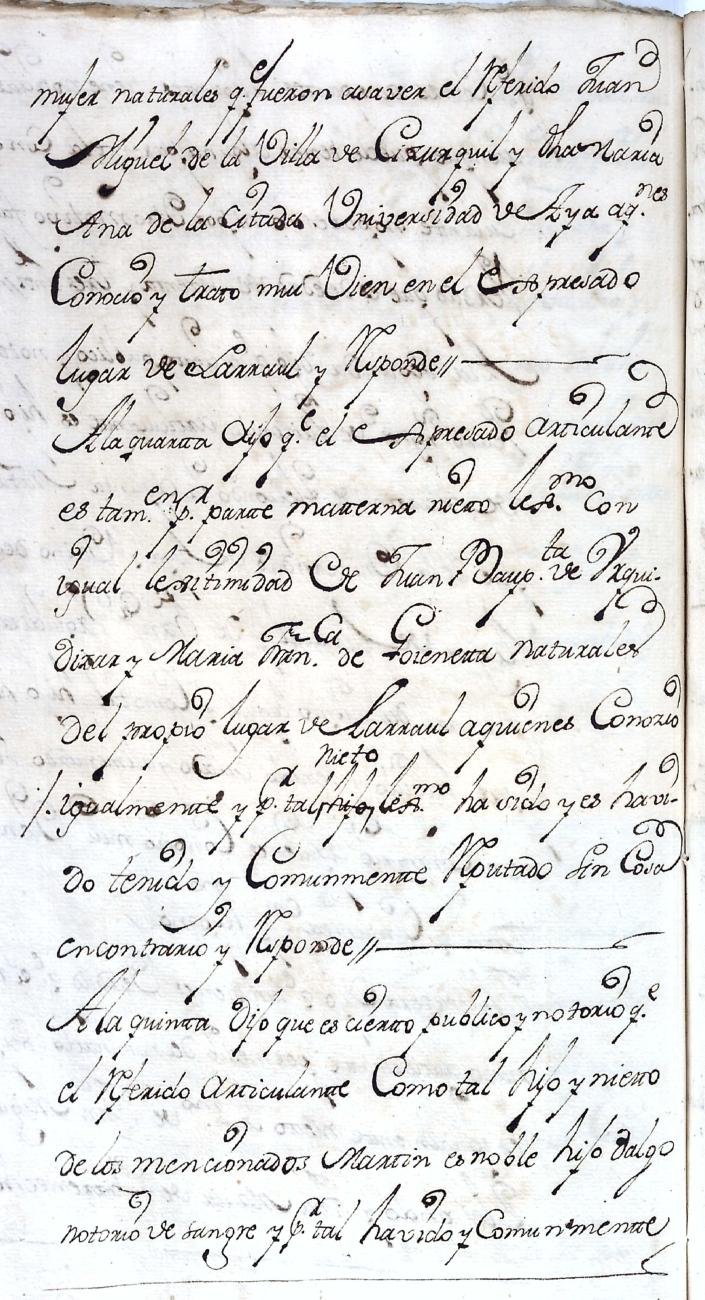 muger naturales q.e fueron asaver el Referido Juan
Miguel de la Villa de Cizurquil y dha Maria
Ana de la Citada Universidad de Aya aq.nes
Conocio y trato mui Vien en el Expresado
lugar de Larraul y Responde //
A la quartta dijo q.e el Expresado Articulante
es tam.en p.r partte matterna nieto lexmo con
igual lexitimidad de Juan Baup.ta de Yrqui-
dizar y Maria Fran.ca de Goienetta naturales
del propio lugar de Larraul aquienes Conozio
nieto
/. igualmentte y p.r tal hijo lex.mo ha sido y es havi-
do tenido y Comunmentte Reputado sin Cosa
encontrario y Responde //
A la quintta Dijo que es cierto publico y notorio q.e
el Referido Articulantte Como tal hijo y nietto
de los mencionados Martin es noble hijo dalgo
notorio de sangre y p.r tal havido y Comunmentte